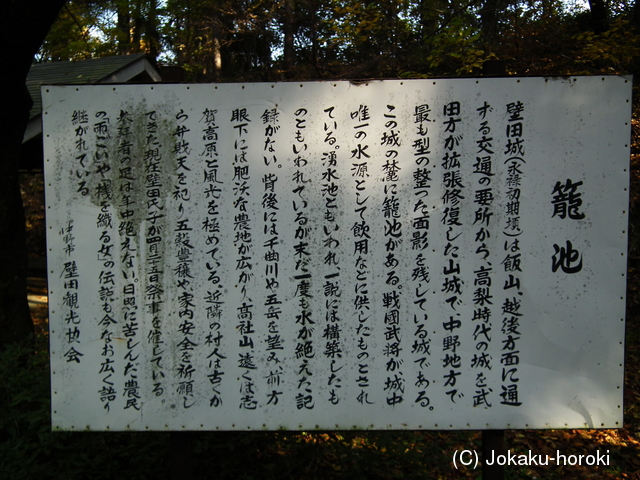 籠池
壁田城(永禄初期頃)は飯山、越後方面に通
ずる交通の要所から、高梨時代の城を武
田方が拡張修復した山城で、中野地方で
最も型の整った面影を残している城である。
この城の麓に籠池がある。戦國武将が城中
唯一の水源として飲用などに供したものとされ
ている。湧水池ともいわれ、一説には構築したも
のともいわれているが未だ一度も水が絶えた記
録がない。背後には千曲川や五岳を望み、前方
眼下には肥沃な農地が広がり、高社山、遠くは志
賀高原と風光を極めている。近隣の村人は古くか
ら弁財天を祀り、五穀豊穣や家内安全を祈願し
てきた。現在壁田氏子が四月二十五日祭事を催している
参拝者の足は年中絶えない。日照に苦しんだ農民
の「雨ごいや「機を織る女」の伝説も今なお広く語り
継がれている
中野市 壁田観光協会
(C) Jokaku-horoki